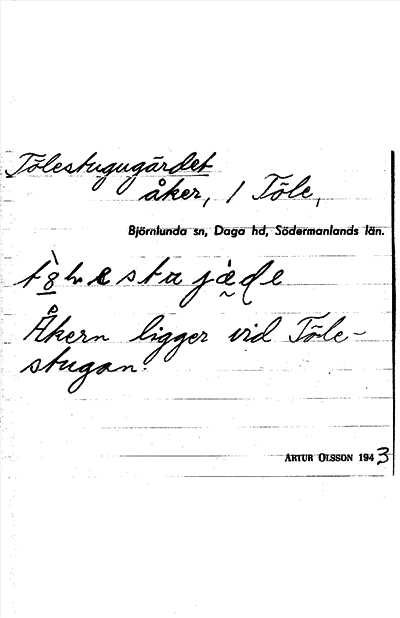 Tölestugugärdet
åker, / Töle,
Björnlunda sn, Daga hd, Södermanlands län.
Åkern ligger vid Töle-
stugan.
ARTUR OLSSON 1943